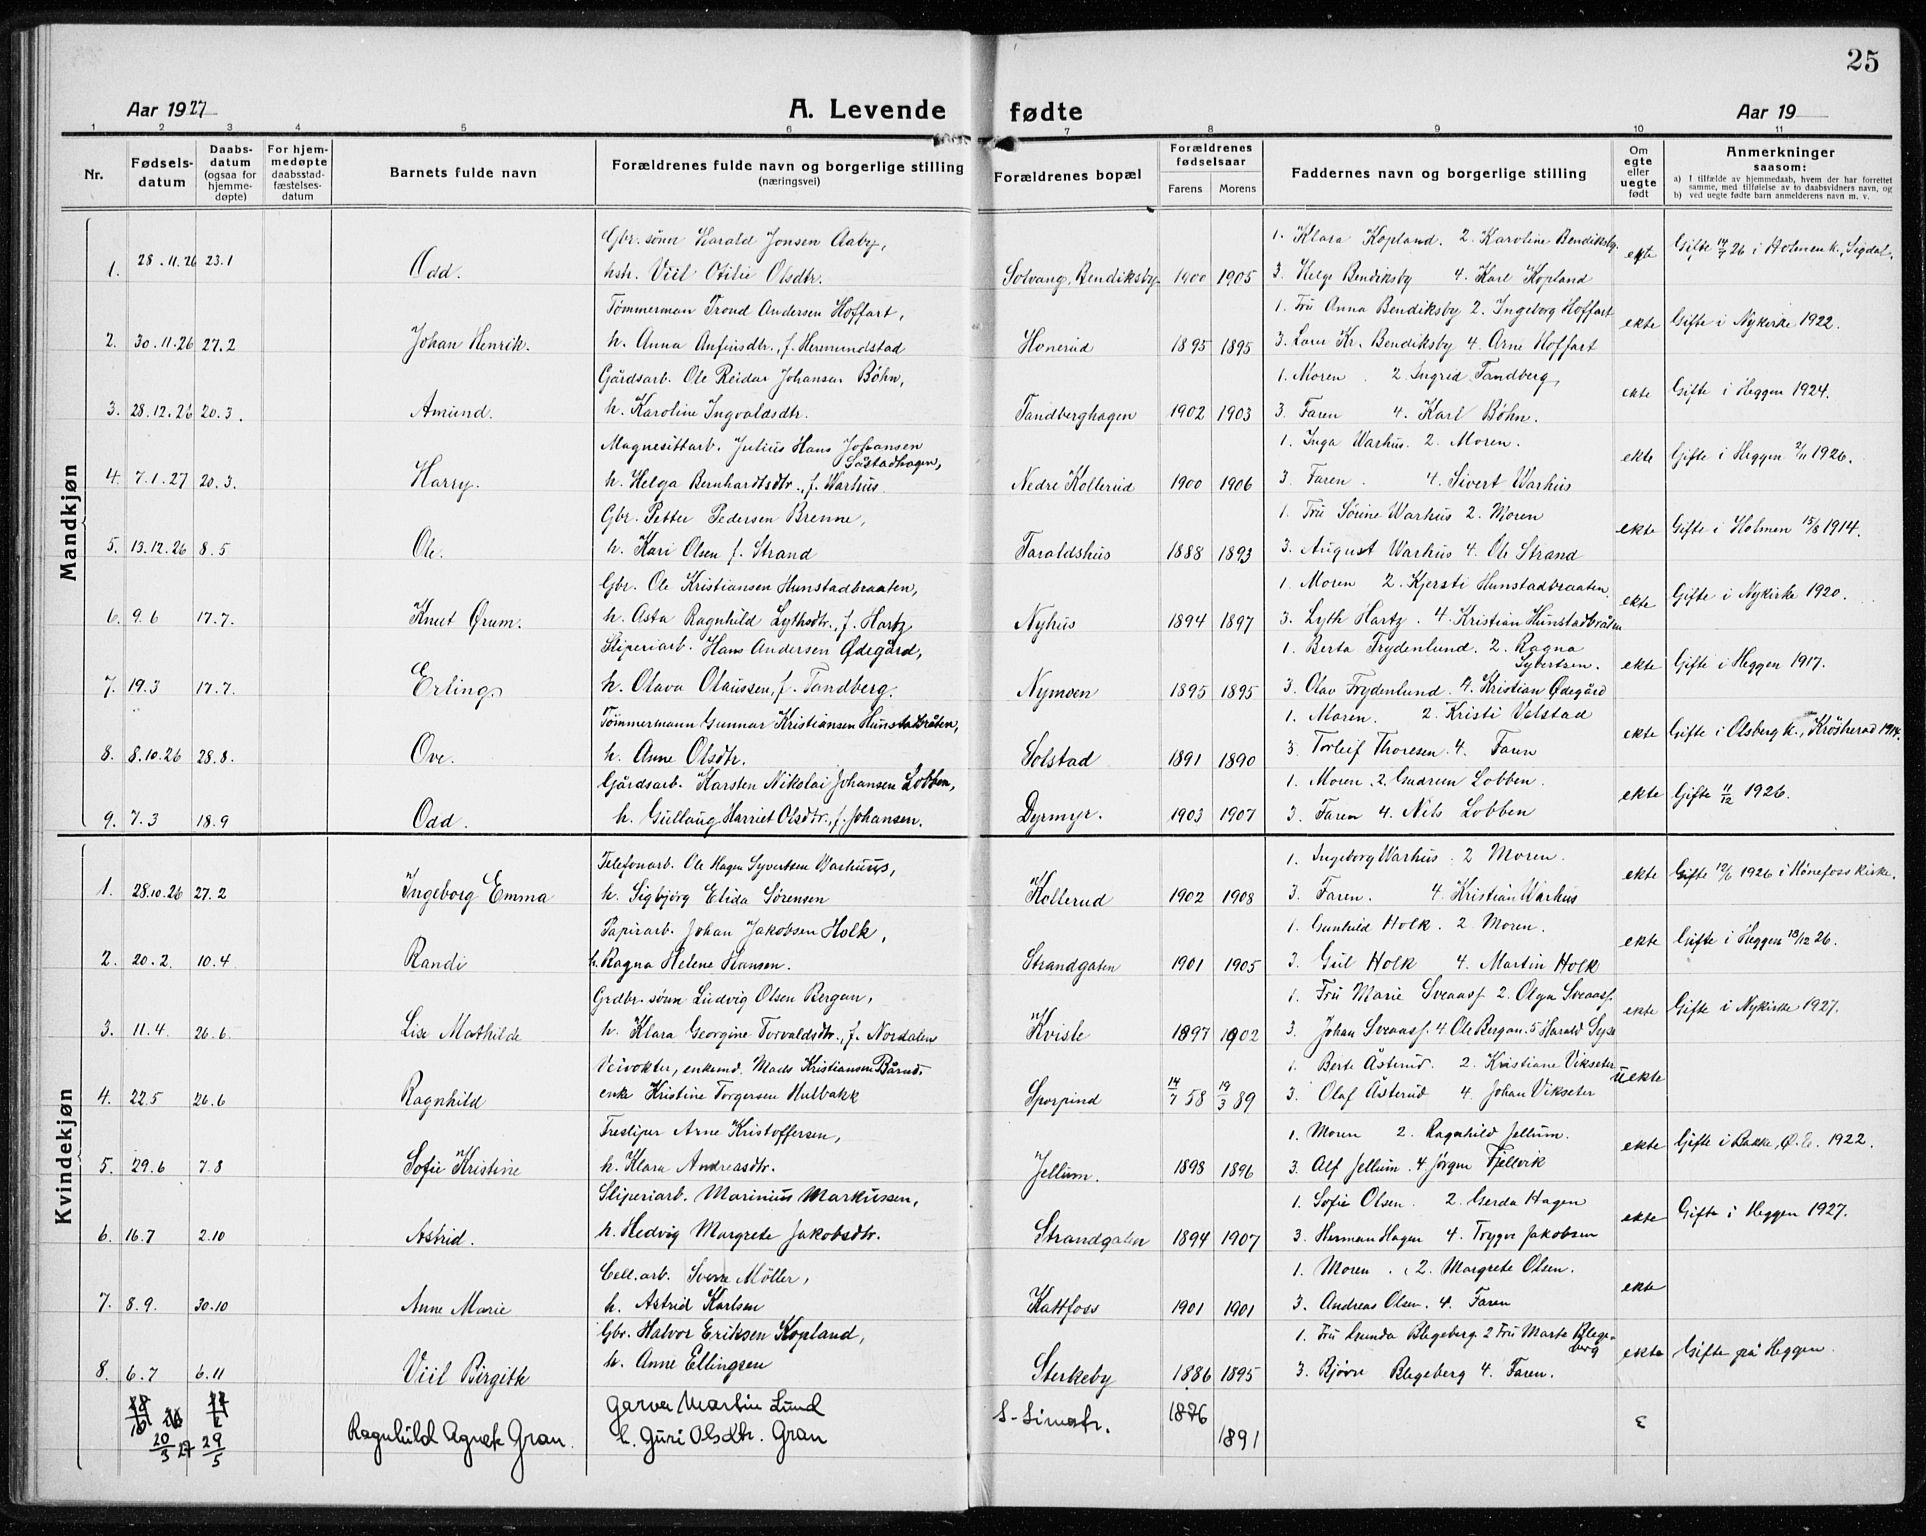 25
Aar 1927
A. Levende fødte
Aar 19
1 2 3 4 5 6 7 8 9 10 11
Nr.
Fødsels-
datum
Daabs-
datum
(ogsaa for
hjemme-
døpte)
For hjem-
medøpte
daabsstad-
fæstelses-
datum
Barnets fulde navn
Forældrenes fulde navn og borgerlige stilling
(næringsvei)
Forældrenes bopæl
Forældrenes
fødselsaar
Farens Morens
Faddernes navn og borgerlige stilling
Om
egte
eller
uegte
født
Anmerkninger
saasom:
a) I tilfælde av hjemmedaab, hvem der har forrettet
samme, med tilføielse av to daabsvidners navn, og
b) ved uegte fødte barn anmelderens navn m. v.
Mandkjøn
Gbr. sønn Harald Jonsen Aaby, 1. Klara Kopland. 2. Karoline Bendiksby.
1. 28.11.26 23.1 Odd. hstr. Viil Otilie Olsdtr. Solvang, Bendiksby 1900 1905 3. Helge Bendiksby 4. Karl Kopland ekte Gifte 14/7 26 i Holmen k., Sigdal.
Tømmerman Trond Andersen Hoffart, 1. Fru Anna Bendiksby 2. Ingeborg Hoffart
2. 30.11.26 27.2 Johan Henrik. h. Anna Anfinsdtr., f. Heremundstad Honerud 1895 1895 3. Lars Kr. Bendiksby 4. Arne Hoffart ekte Gifte i Nykirke 1922.
Gårdsarb. Ole Reidar Johansen Bøhn, 1. Moren. 2. Ingrid Tandberg,
3. 28.12.26 20.3. Amund. h. Karoline Ingvaldsdtr. Tandberghagen 1902 1903 3. Faren 4. Karl Bøhn. ekte Gifte i Heggen 1924.
Magnesittarb. Julius Hans Johansen 1. Inga Warhus. 2. Moren.
Gåstadhagen,
4. 7.1.27 20.3. Harry. h. Helga Bernhardtsdtr., f. Warhus. Nedre Kollerud 1900 1906 3. Faren. 4. Sivert Warhus ekte Gifte i Heggen 2/11 1926.
Gbr. Petter Pedersen Brenne, 1. Fru Sørine Warhus 2. Moren
5. 13.12.26 8.5 Ole. h. Kari Olsen f. Strand Taraldshus 1888 1893 3. August Warhus 4. Ole Strand ekte Gifte i Holmen 15/8 1914.
Gbr. Ole Kristiansen Hunstadbraaten, 1. Moren 2. Kjersti Hunstadbraaten.
6. 9.6 17.7. Knut Ørum. h. Asta Ragnhild Lythsdtr., f. Hartz Nyhus 1894 1897 3. Lyth Hartz. 4. Kristian Hunstadbråten ekte Gifte i Nykirke 1920.
Sliperiarb. Hans Andersen Ødegård, 1. Berta Frydenlund. 2. Ragna
Sybertsen.
7. 19.3 17.7. Erling. h. Olava Olaussen, f. Tandberg. Nymoen 1895 1895 3. Olav Frydenlund. 4. Kristian Ødegård ekte Gifte i Heggen 1917.
Tømmermann Gunnar Kristiansen Hunstadbråten, 1. Moren. 2. Kristi Velstad
8. 8.10.26 28.8. Ove. h. Anne Olsdtr. Solstad 1891 1890 3. Torleif Thoresen 4. Faren ekte Gifte i Olsberg k., Krösherad 1914.
Gårdsarb. Karsten Nikolai Johansen Lobben, 1. Moren. 2. Gudrun Lobben.
9. 7.3 18.9 Odd. h. Gullaug Harriet Olsdtr., f. Johansen. Dyrmyr. 1903 1907 3. Faren 4. Nils Lobben ekte Gifte 11/12 1926.
Kvindekjøn
Telefonarb. Ole Hagen Syvertsen Warhuus, 1. Ingeborg Warhus. 2 Moren.
1. 28.10.26 27.2 Ingeborg Emma h. Sigbjørg Elida Sørensen Kollerud 1902 1908 3. Faren. 4. Kristian Warhus ekte Gifte 12/6 1926 i Hønefoss kirke.
Papirarb. Johan Jakobsen Holk, 1. Gunhild Holk. 2 Moren.
2. 20.2. 10.4 Randi h. Ragna Helene Hansen. Strandgaten 1901 1905 3. Gul Holk 4. Martin Holk ekte Gifte i Heggen 13/12 26.
Grdbr. sønn Ludvig Olsen Bergan, 1. Fru Marie Sveaass. 2. Olga Sveaass.
3. 11.4. 26.6. Lise Mathilde h. Klara Georgine Torvaldsdtr., f. Nordalen Kvisle 1897 1902 3. Johan Sveaass. 4. Ole Bergan. 5 Harald Syse ekte Gifte i Nykirke 1927.
Veivokter, enkemd. Mads Kristiansen Bårnås. 1. Berte Åsterud. 2. Kristiane Vikseter
4. 22.5 26.6 Ragnhild enke Kristine Torgersen Hulbakk Sporpind 14/7 58 19/3 89 3. Olaf Åsterud 4. Johan Vikseter Uekte
Tresliper Arne Kristoffersen, 1. Moren 2. Ragnhild Jellum.
5. 29.6 7.8 Sofie Kristine h. Klara Andreasdtr. Jellum. 1898 1896 3. Alf Jellum. 4. Jörgen Fjellvik ekte Gifte i Bakke, Ø. E. 1922.
Sliperiarb. Marinius Markussen, 1. Sofie Olsen. 2. Gerda Hagen
6. 16.7 2.10 Astrid. h. Hedvig Margrete Jakobsdtr. Strandgaten 1894 1907 3. Herman Hagen 4. Trygve Jakobsen ekte Gifte i Heggen 1927.
Cell.arb. Sverre Möller, 1. Moren. 2. Margrete Olsen.
7. 8.9. 30.10 Anne Marie h. Astrid Karlsen Kattfoss 1901 1901 3. Andreas Olsen. 4. Faren ekte
Gbr. Halvor Eriksen Kopland, 1. Fru Gunda Blegeberg. 2 Fru Marte Blege-
berg
8. 6.7 6.11 Viil Birgith h. Anne Ellingsen Sterkeby 1886 1895 3. Bjørn Blegeberg 4. Faren. ekte Gifte på Heggen.
garver Martin Lund S. Simostr. 1876
20/3 27 29/5 Ragnhild Agnete Gran. h. Guri Olsdtr. Gran 1891 ε